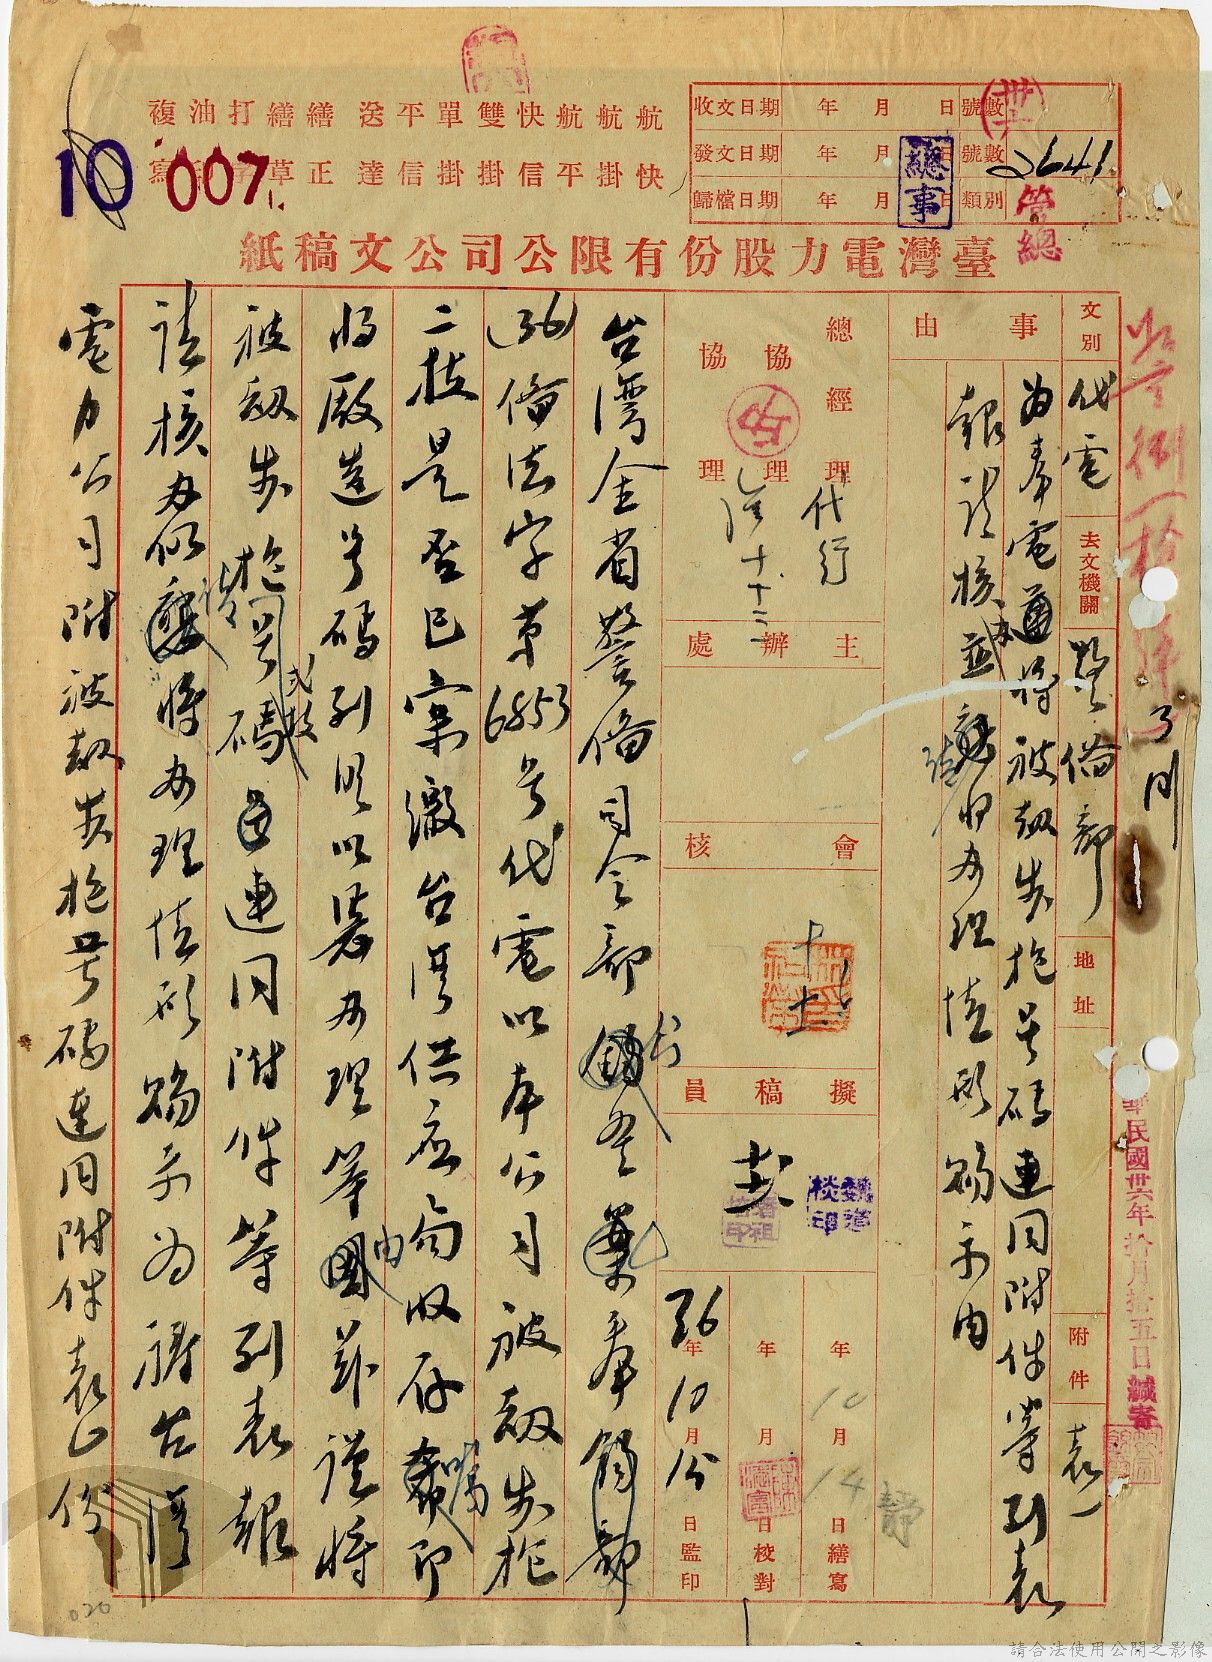 航航航快雙單平送繕繕打油複
快掛平信掛掛信達正草字印寫
10 007
收文日期 年 月 日 號數
發文日期 年 月 日 號數 2641
歸檔日期 年 月 日 類別
總事
管總
臺灣電力股份有限公司公文稿紙
文別 代電 去文機關 警備部 地址 附件 表一
事由
為奉電通將被劫步槍號碼連同附件等列表
報請核並將辦理情形賜示由
總經理 代行
協理
協理
主辦處
會核
擬稿員
年 月 日繕寫 10 14
年 月 日校對
36年10月 日監印
華民國卅六年拾月拾五日緘寄
台灣全省警備司令部 奉鈞部
(36)備法字第6853號代電以本公司被劫步槍
二枝是否已案繳台灣供應局收存 即
將廠造號碼列明以憑辦理等由 茲謹將
被劫步槍 式枝 號碼 連同附件等列表報
請核辦 將辦理情形賜示為禱台灣
電力公司附被劫步槍號碼連同附件表乙份
020
請合法使用公開之影像